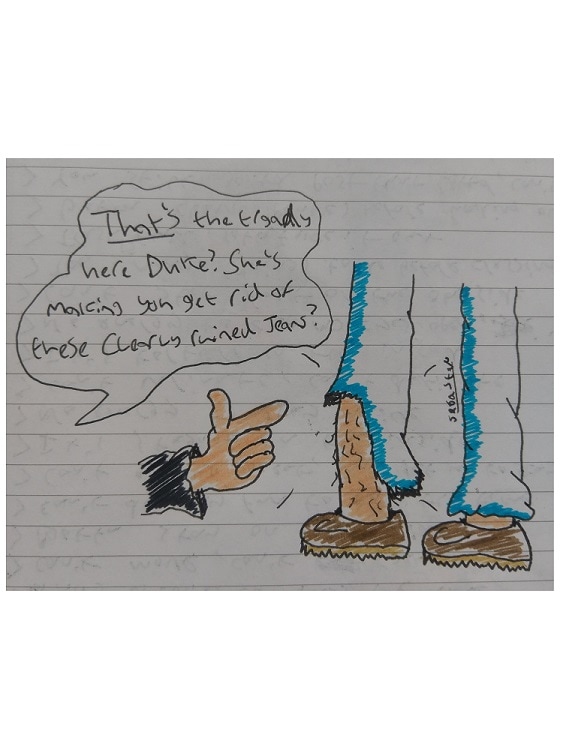 That's the tragady
here Duke? She's
making you get rid of
these clearly ruined Jeans?